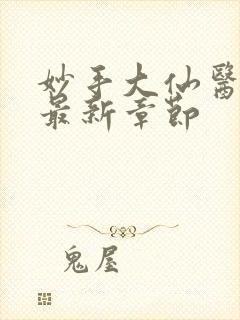 妙手大仙醫
最新章節
鬼屋